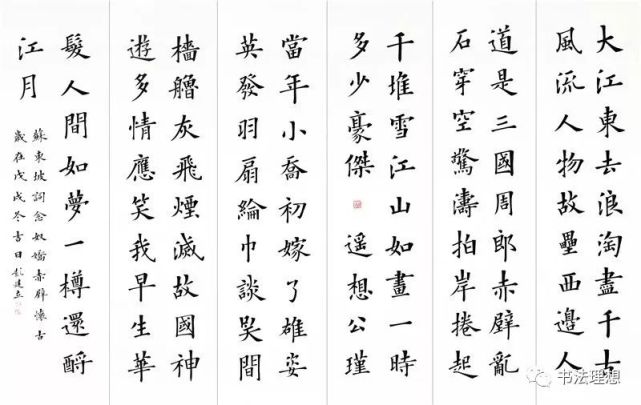 大江東去浪淘盡千古
風流人物故壘西邊人
道是三國周郎赤壁亂
石穿空驚濤拍岸捲起
千堆雪江山如畫一時
多少豪傑 遥想公瑾
當年小喬初嫁了雄姿
英發羽扇綸巾談笑間
檣艣灰飛煙滅故國神
遊多情應笑我早生華
髮人間如夢一樽還酹
江月
蘇東坡詞念奴嬌赤壁懷古
歲在戊戌冬吉日
书法理想